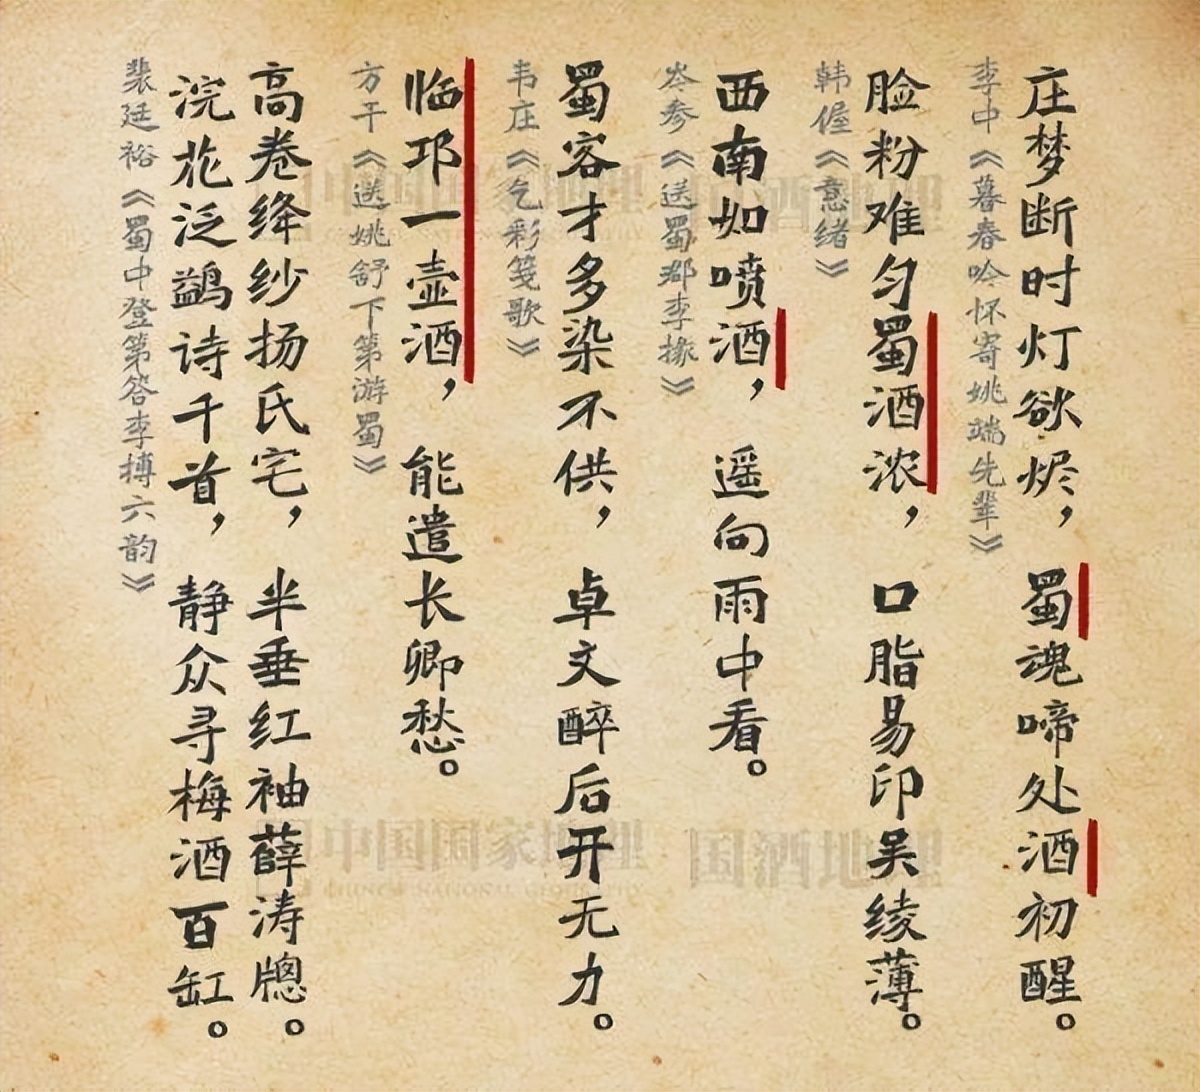 庄梦断时灯欲烬，蜀魂啼处酒初醒。
李中《暮春吟怀寄姚端先辈》
脸粉难匀蜀酒浓，口脂易印吴绫薄。
韩偓《意绪》
西南如喷酒，遥向雨中看。
岑参《送蜀郡李掾》
蜀客才多染不供，卓文醉后开无力。
韦庄《乞彩笺歌》
临邛一壶酒，能遣长卿愁。
方干《送姚舒下第游蜀》
高卷绛纱扬氏宅，半垂红袖薛涛牕。
浣花泛鹢诗千首，静众寻梅酒百缸。
裴廷裕《蜀中登第答李搏六韵》
中国国家地理
CHINESE NATIONAL GEOGRAPHY
国酒地理
中国国家地理
CHINESE NATIONAL GEOGRAPHY
国酒地理